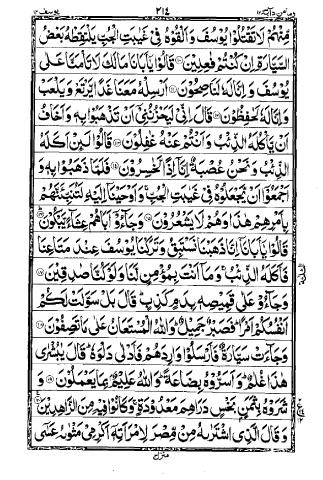 ومامن دآبة ١٢ ٢١٤ يوسف ١٢
مِّنْهُمْ لَا تَقْتُلُوْا يُوْسُفَ وَاَلْقُوْهُ فِىْ غَيٰبَتِ الْجُبِّ يَلْتَقِطْهُ بَعْضُ
السَّيَّارَةِ اِنْ كُنْتُمْ فٰعِلِيْنَ ۝١٠ قَالُوْا يٰٓاَبَانَا مَا لَكَ لَا تَاْمَنَّا عَلٰى
يُوْسُفَ وَاِنَّا لَهٗ لَنٰصِحُوْنَ ۝١١ اَرْسِلْهُ مَعَنَا غَدًا يَّرْتَعْ وَيَلْعَبْ
وَاِنَّا لَهٗ لَحٰفِظُوْنَ ۝١٢ قَالَ اِنِّىْ لَيَحْزُنُنِىْٓ اَنْ تَذْهَبُوْا بِهٖ وَاَخَافُ
اَنْ يَّاْكُلَهُ الذِّئْبُ وَاَنْتُمْ عَنْهُ غٰفِلُوْنَ ۝١٣ قَالُوْا لَئِنْ اَكَلَهُ
الذِّئْبُ وَنَحْنُ عُصْبَةٌ اِنَّآ اِذًا لَّخٰسِرُوْنَ ۝١٤ فَلَمَّا ذَهَبُوْا بِهٖ وَ
اَجْمَعُوْٓا اَنْ يَّجْعَلُوْهُ فِىْ غَيٰبَتِ الْجُبِّ ۚ وَاَوْحَيْنَآ اِلَيْهِ لَتُنَبِّئَنَّهُمْ
بِاَمْرِهِمْ هٰذَا وَهُمْ لَا يَشْعُرُوْنَ ۝١٥ وَجَآءُوْٓ اَبَاهُمْ عِشَآءً يَّبْكُوْنَ ۝١٦
قَالُوْا يٰٓاَبَانَآ اِنَّا ذَهَبْنَا نَسْتَبِقُ وَتَرَكْنَا يُوْسُفَ عِنْدَ مَتَاعِنَا
فَاَكَلَهُ الذِّئْبُ ۚ وَمَآ اَنْتَ بِمُؤْمِنٍ لَّنَا وَلَوْ كُنَّا صٰدِقِيْنَ ۝١٧
وَجَآءُوْ عَلٰى قَمِيْصِهٖ بِدَمٍ كَذِبٍ ؕ قَالَ بَلْ سَوَّلَتْ لَكُمْ
اَنْفُسُكُمْ اَمْرًا ؕ فَصَبْرٌ جَمِيْلٌ ؕ وَاللّٰهُ الْمُسْتَعَانُ عَلٰى مَا تَصِفُوْنَ ۝١٨
وَجَآءَتْ سَيَّارَةٌ فَاَرْسَلُوْا وَارِدَهُمْ فَاَدْلٰى دَلْوَهٗ ؕ قَالَ يٰبُشْرٰى
هٰذَا غُلٰمٌ ؕ وَاَسَرُّوْهُ بِضَاعَةً ؕ وَاللّٰهُ عَلِيْمٌۢ بِمَا يَعْمَلُوْنَ ۝١٩ وَ
شَرَوْهُ بِثَمَنٍۢ بَخْسٍ دَرَاهِمَ مَعْدُوْدَةٍ ۚ وَكَانُوْا فِيْهِ مِنَ الزّٰهِدِيْنَ ۝٢٠
وَقَالَ الَّذِى اشْتَرٰىهُ مِنْ مِّصْرَ لِامْرَاَتِهٖٓ اَكْرِمِىْ مَثْوٰىهُ عَسٰٓى
منزل